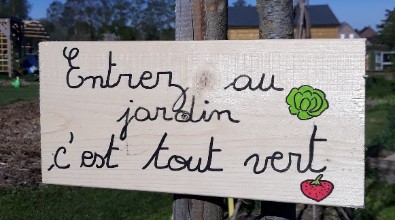 Entrez au
jardin
c'est tout vert